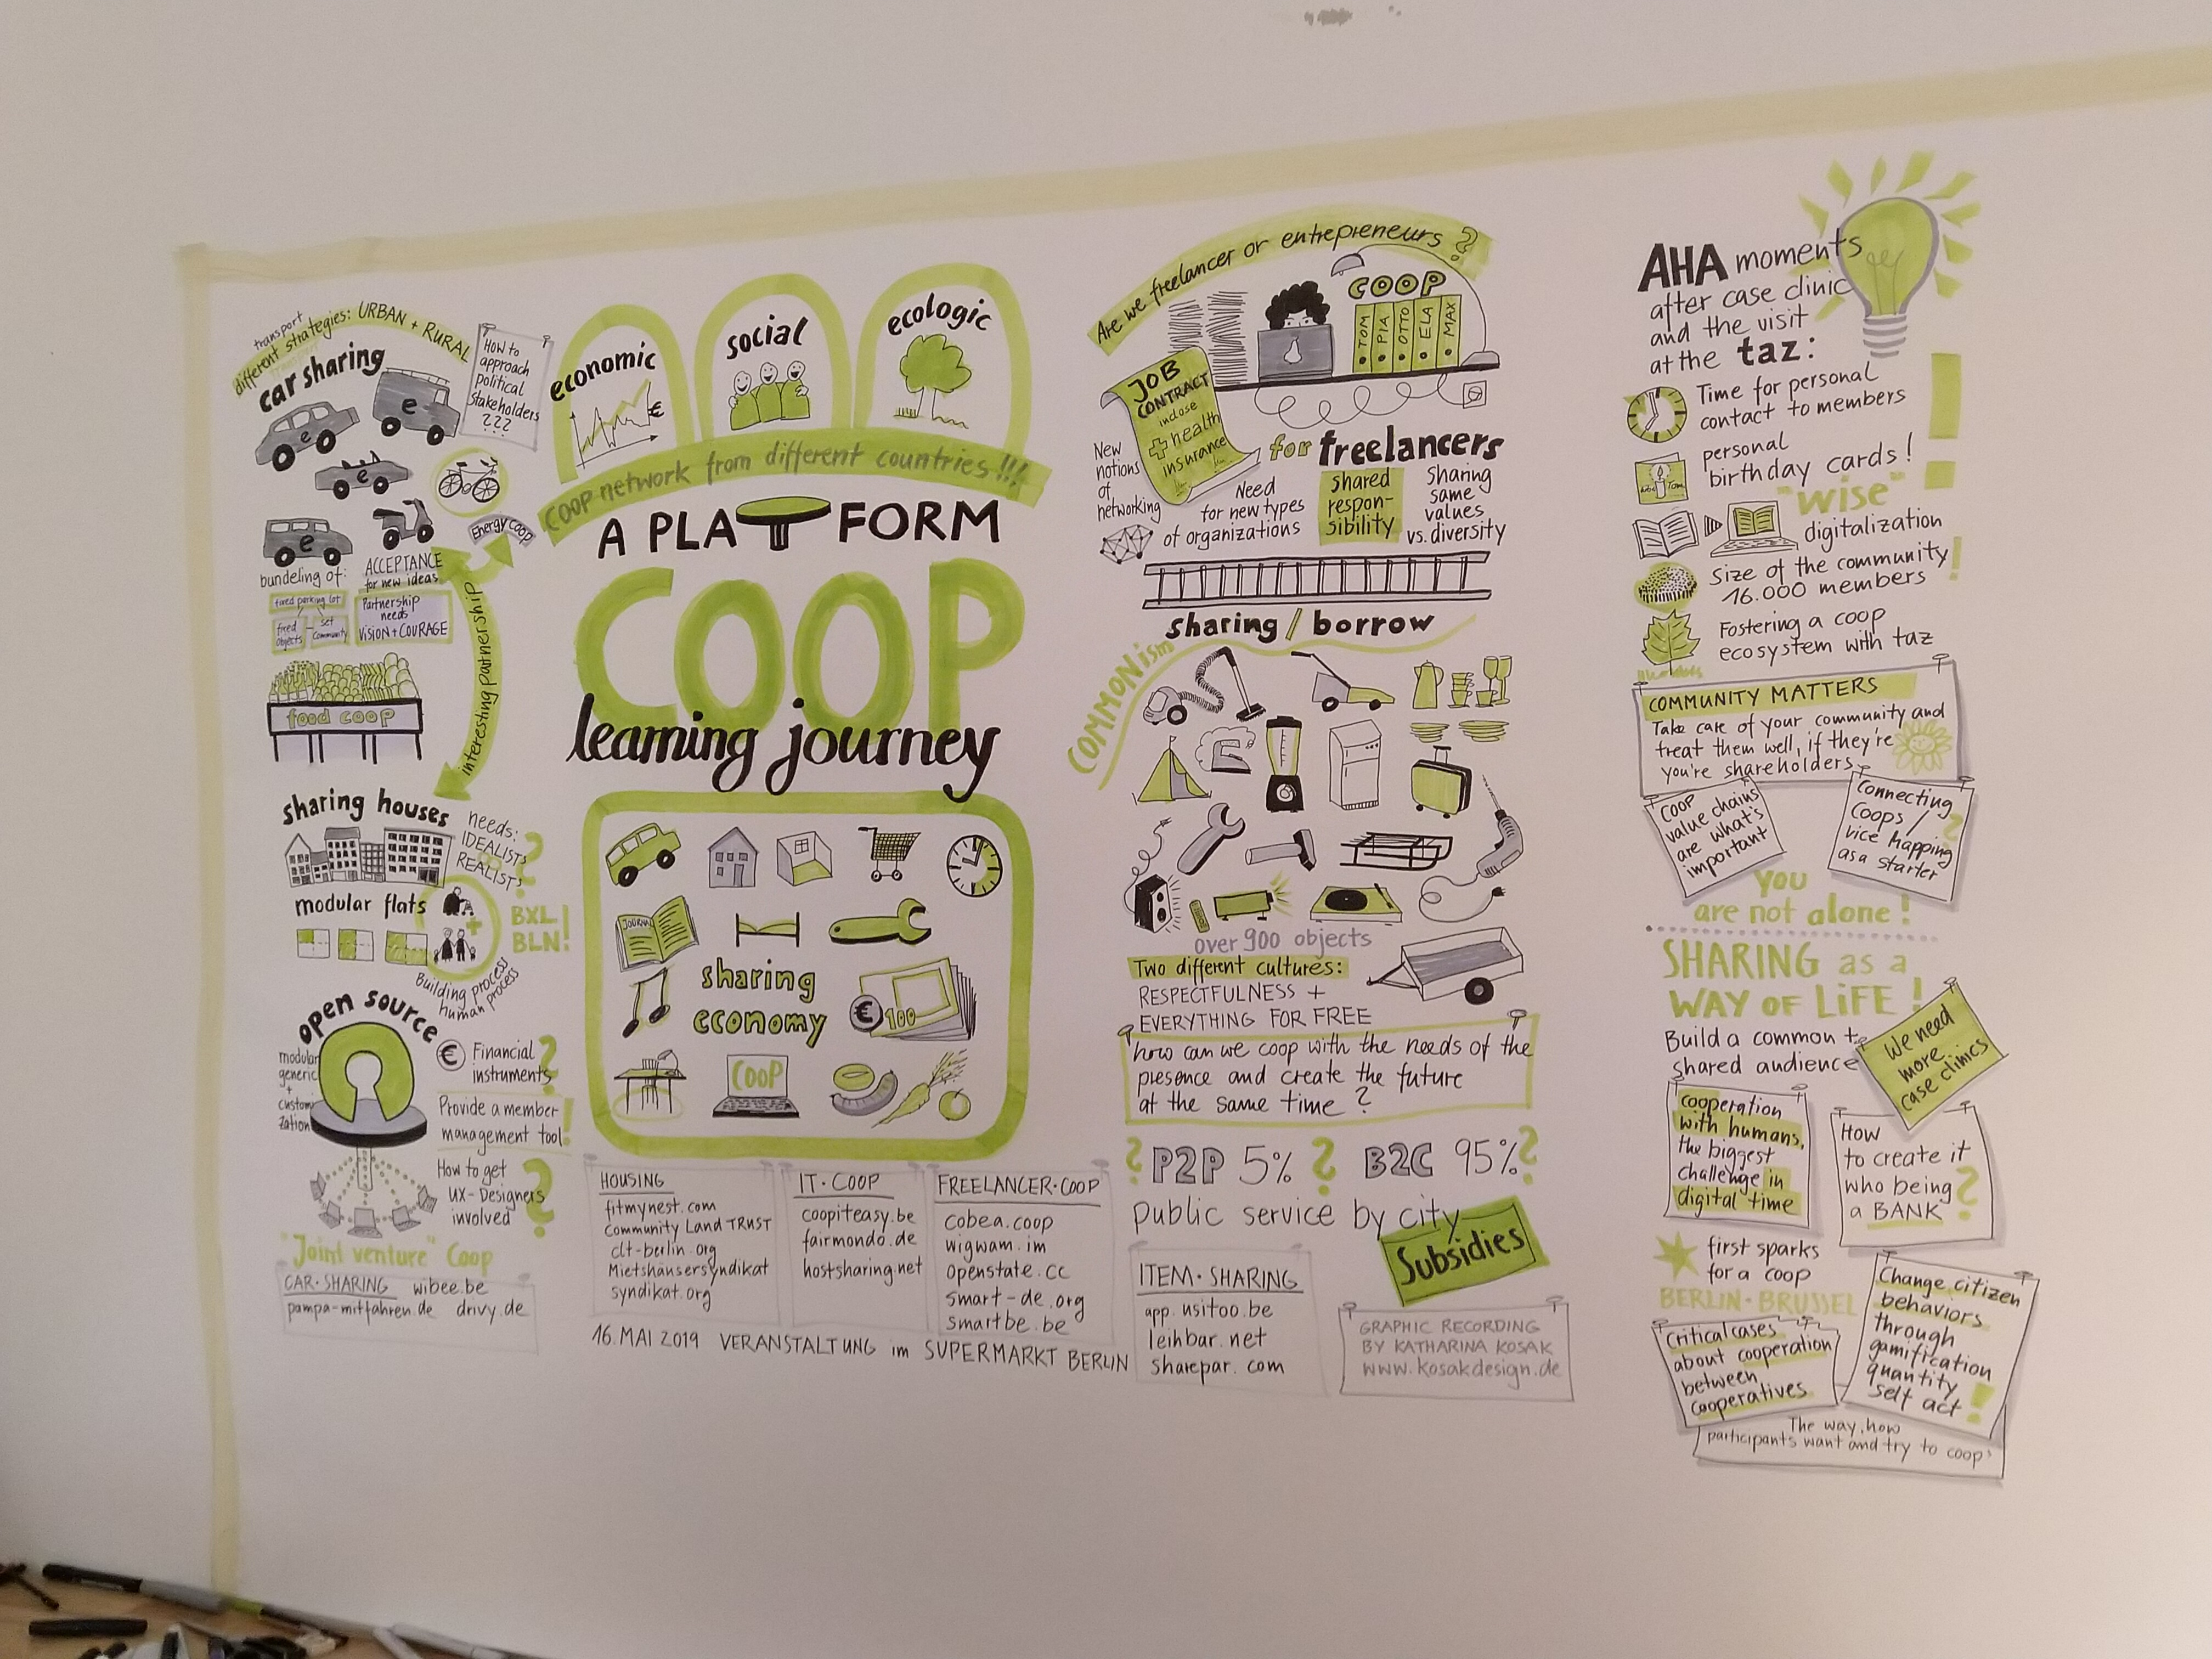 transport
different strategies: URBAN + RURAL
car sharing
HOW to
approach
political
stakeholders
???
e
e
e
e
Energy coop
bundeling of:
fixed parking lot
set
community
objects
ACCEPTANCE
for new ideas
Partnership
needs
VISION + COURAGE
interesting partnership
food coop
sharing houses
needs:
IDEALISTS
REALISTS
?
modular flats
+
BXL
BLN!
Building process
human process
open source
modular
generic
+
customi
zation
€ Financial
instruments?
Provide a member
management tool!
How to get
UX-Designers
involved ?
"Joint venture" Coop
CAR·SHARING wibee.be
pampa-mitfahren.de drivy.de
economic
€
social
ecologic
COOP-network from different countries!!!
A PLATFORM
COOP
learning journey
JOURNAL
sharing
economy
€ 100
COOP
HOUSING
fitmynest.com
Community Land TRUST
clt-berlin.org
Mietshänsersyndikat
syndikat.org
IT·COOP
coopiteasy.be
fairmondo.de
hostsharing.net
FREELANCER·COOP
cobea.coop
wigwam.im
openstate.cc
smart-de.org
smartbe.be
16. MAI 2019 VERANSTALTUNG im SUPERMARKT BERLIN
Are we freelancer or entrepreneurs ?
COOP
TOM
PIA
OTTO
ELA
MAX
JOB
CONTRACT
inclose
+ health
insurance
for freelancers
New
notions
of
networking
Need
for new types
of organizations
shared
respon-
sibility
Sharing
same
values
vs. diversity
sharing / borrow
COMMONism
over 900 objects
Two different cultures:
RESPECTFULNESS +
EVERYTHING FOR FREE
how can we coop with the needs of the
presence and create the future
at the same time ?
? P2P 5% ? B2C 95% ?
public service by city
Subsidies
ITEM·SHARING
app.usitoo.be
leihbar.net
sharepar.com
GRAPHIC RECORDING
BY KATHARINA KOSAK
www.kosakdesign.de
AHA moments
after case clinic
and the visit
at the taz:
Time for personal
contact to members
personal
birthday cards!
"wise"
digitalization
Size of the community!
16.000 members
Fostering a coop
ecosystem with taz
COMMUNITY MATTERS
Take care of your community and
treat them well, if they're
you're shareholders
COOP
value chains
are what's
important
Connecting
Coops /
vice happing
as a starter
?
you
are not alone!
SHARING as a
WAY OF LiFE!
Build a common +
shared audience
We need
more
case clinics
cooperation
with humans,
the biggest
challenge in
digital time
HOW
to create it
who being
a BANK
?
first sparks
for a coop
BERLIN·BRUSSEL
Critical cases
about cooperation
between
cooperatives
Change citizen
behaviors
through
gamification
quantity
self act !
The way, how
participants want and try to coop